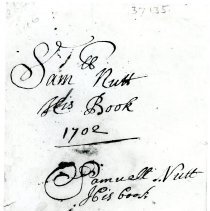 37135.
Sam Nutt
His Book
1702
Samuell Nutt
His book